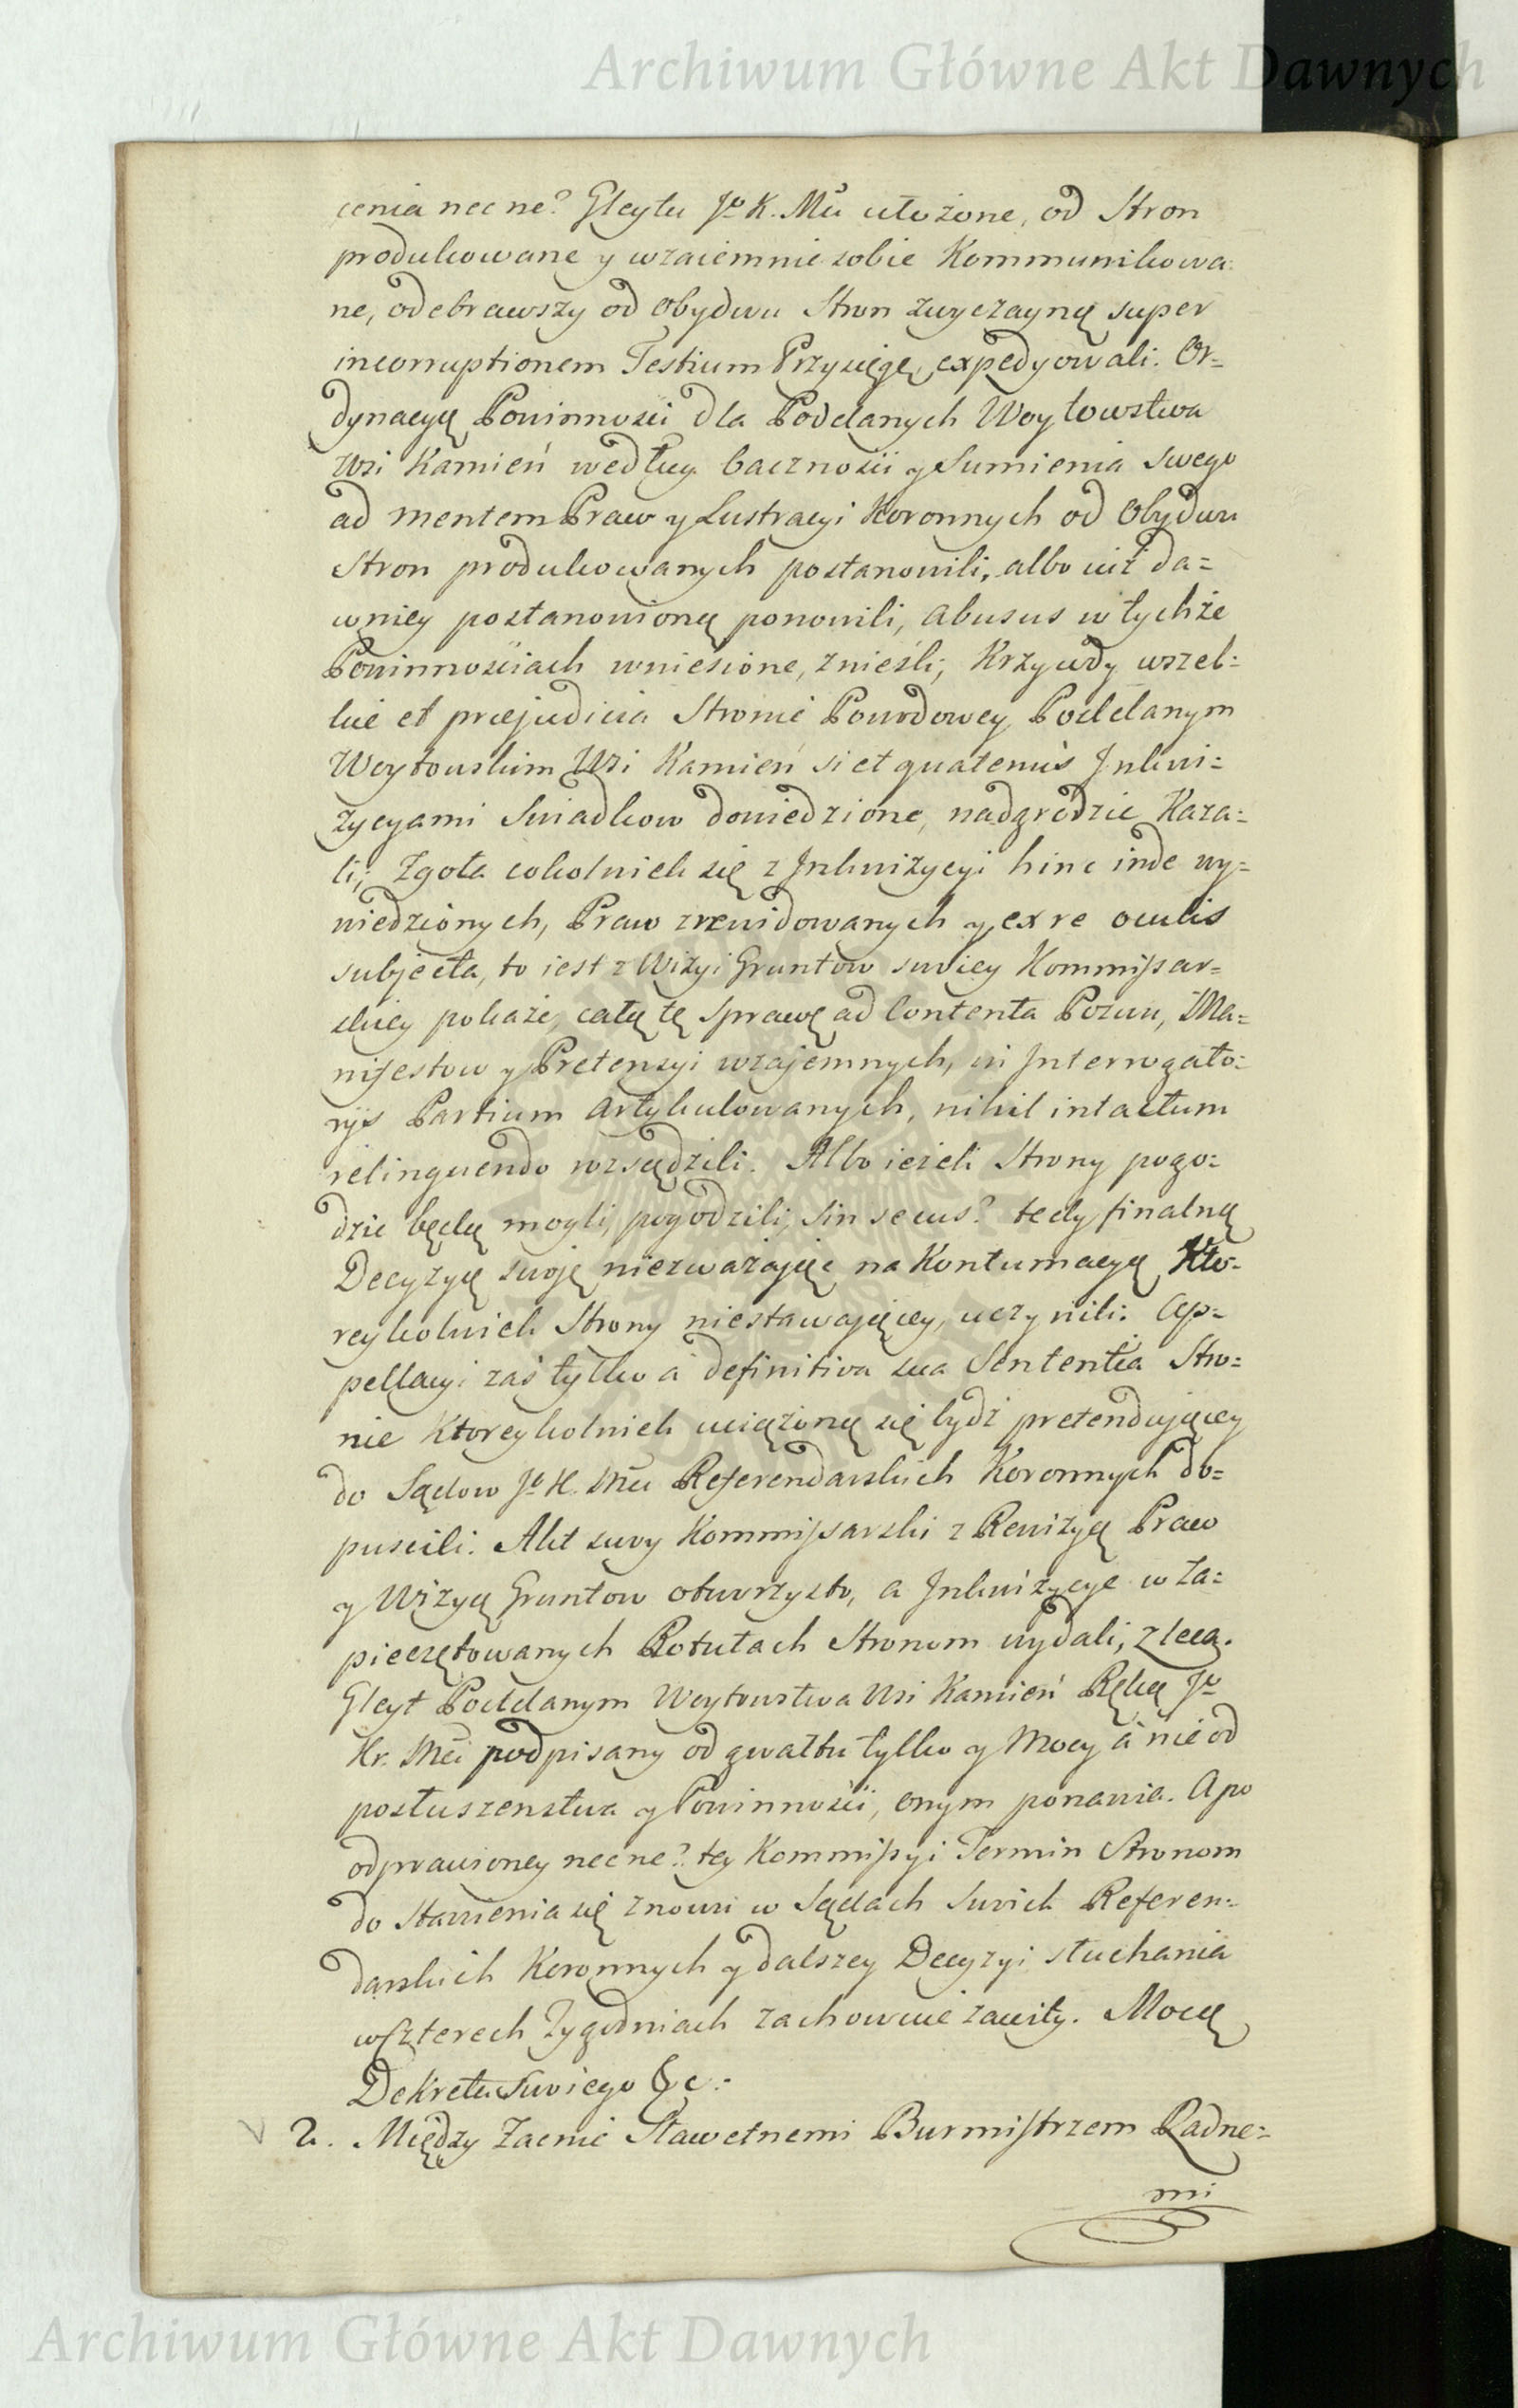 Archiwum Główne Akt Dawnych
cenia nec ne? Gleytu Jo K. Mci ułożone, od Stron
produkowane y wzaiemnie sobie Kommunikowa:
ne, odebrawszy od obydwu Stron zwyczayną super
incorruptionem Testium Przysięgę, expedyowali. Or=
dynacyą Powinnosci dla Poddanych Woytowstwa
Wsi Kamień według bacznosci y Sumienia swego
ad mentem Praw y Lustracyi Koronnych od Obydwu
Stron produkowanych postanowili, albo iuż da=
wniey postanowioną ponowili, abusus w tychże
Powinnościach wniesione, znieśli; Krzywdy wszel=
kie et praejudicia Stronie Powodowey Poddanym
Woytowskim Wsi Kamień si et quatenus Inkwi=
zycyami Swiadkow dowiedzione, nadgrodzic Kaza=
li; Zgoła cokolwiek się z Inkwizycyi hinc inde wy=
wiedzionych, Praw zrewidowanych y, ex re oculis
subjecta, to iest z Wizyi Gruntow swoiey Kommissar=
skiey pokaże, całą tę sprawę ad Contenta Pozwu, Ma=
nifestow y Pretensyi wzajemnych, in Interrogato=
rys Partium artykułowanych, nihil intactum
relinquendo rozsądzili. Albo ieżeli Strony pogo=
dzic będą mogli, pogodzili, sin secus? tedy finalną
Decyzyą swoję niezważaiąc na Kontumacyą Kto=
reykolwiek Strony niestawaiącey, uczynili. Ap=
pellacyi zaś tylko a definitiva sua Sententia Stro=
nie Ktoreykolwiek uciążoną się bydź pretenduiącey
do Sądow Jo K. Mci Referendarskich Koronnych do=
puscili. Akt swoy Kommissarski z Rewizyą Praw
y Wizyą Gruntow otworzysto, a Inkwizycye w za=
pieczętowanych Rotułach Stronom wydali, zleca.
Gleyt Poddanym Woytowstwa Wsi Kamień Ręką Jo
Kr. Mci podpisany od gwałtu tylko y Mocy a nie od
posłuszenstwa y Powinności, onym ponawia. A po
odprawioney nec ne? tey Kommissyi Termin Stronom
do Stawienia się znowu w Sądach Swoich Referen=
darskich Koronnych y dalszey Decyzyi słuchania
w Czterech Tygodniach zachowuie zawity. Mocą
Dekretu Swoiego &c:
2. Między Zacnie Sławetnemi Burmistrzem Radne=
mi
Archiwum Główne Akt Dawnych